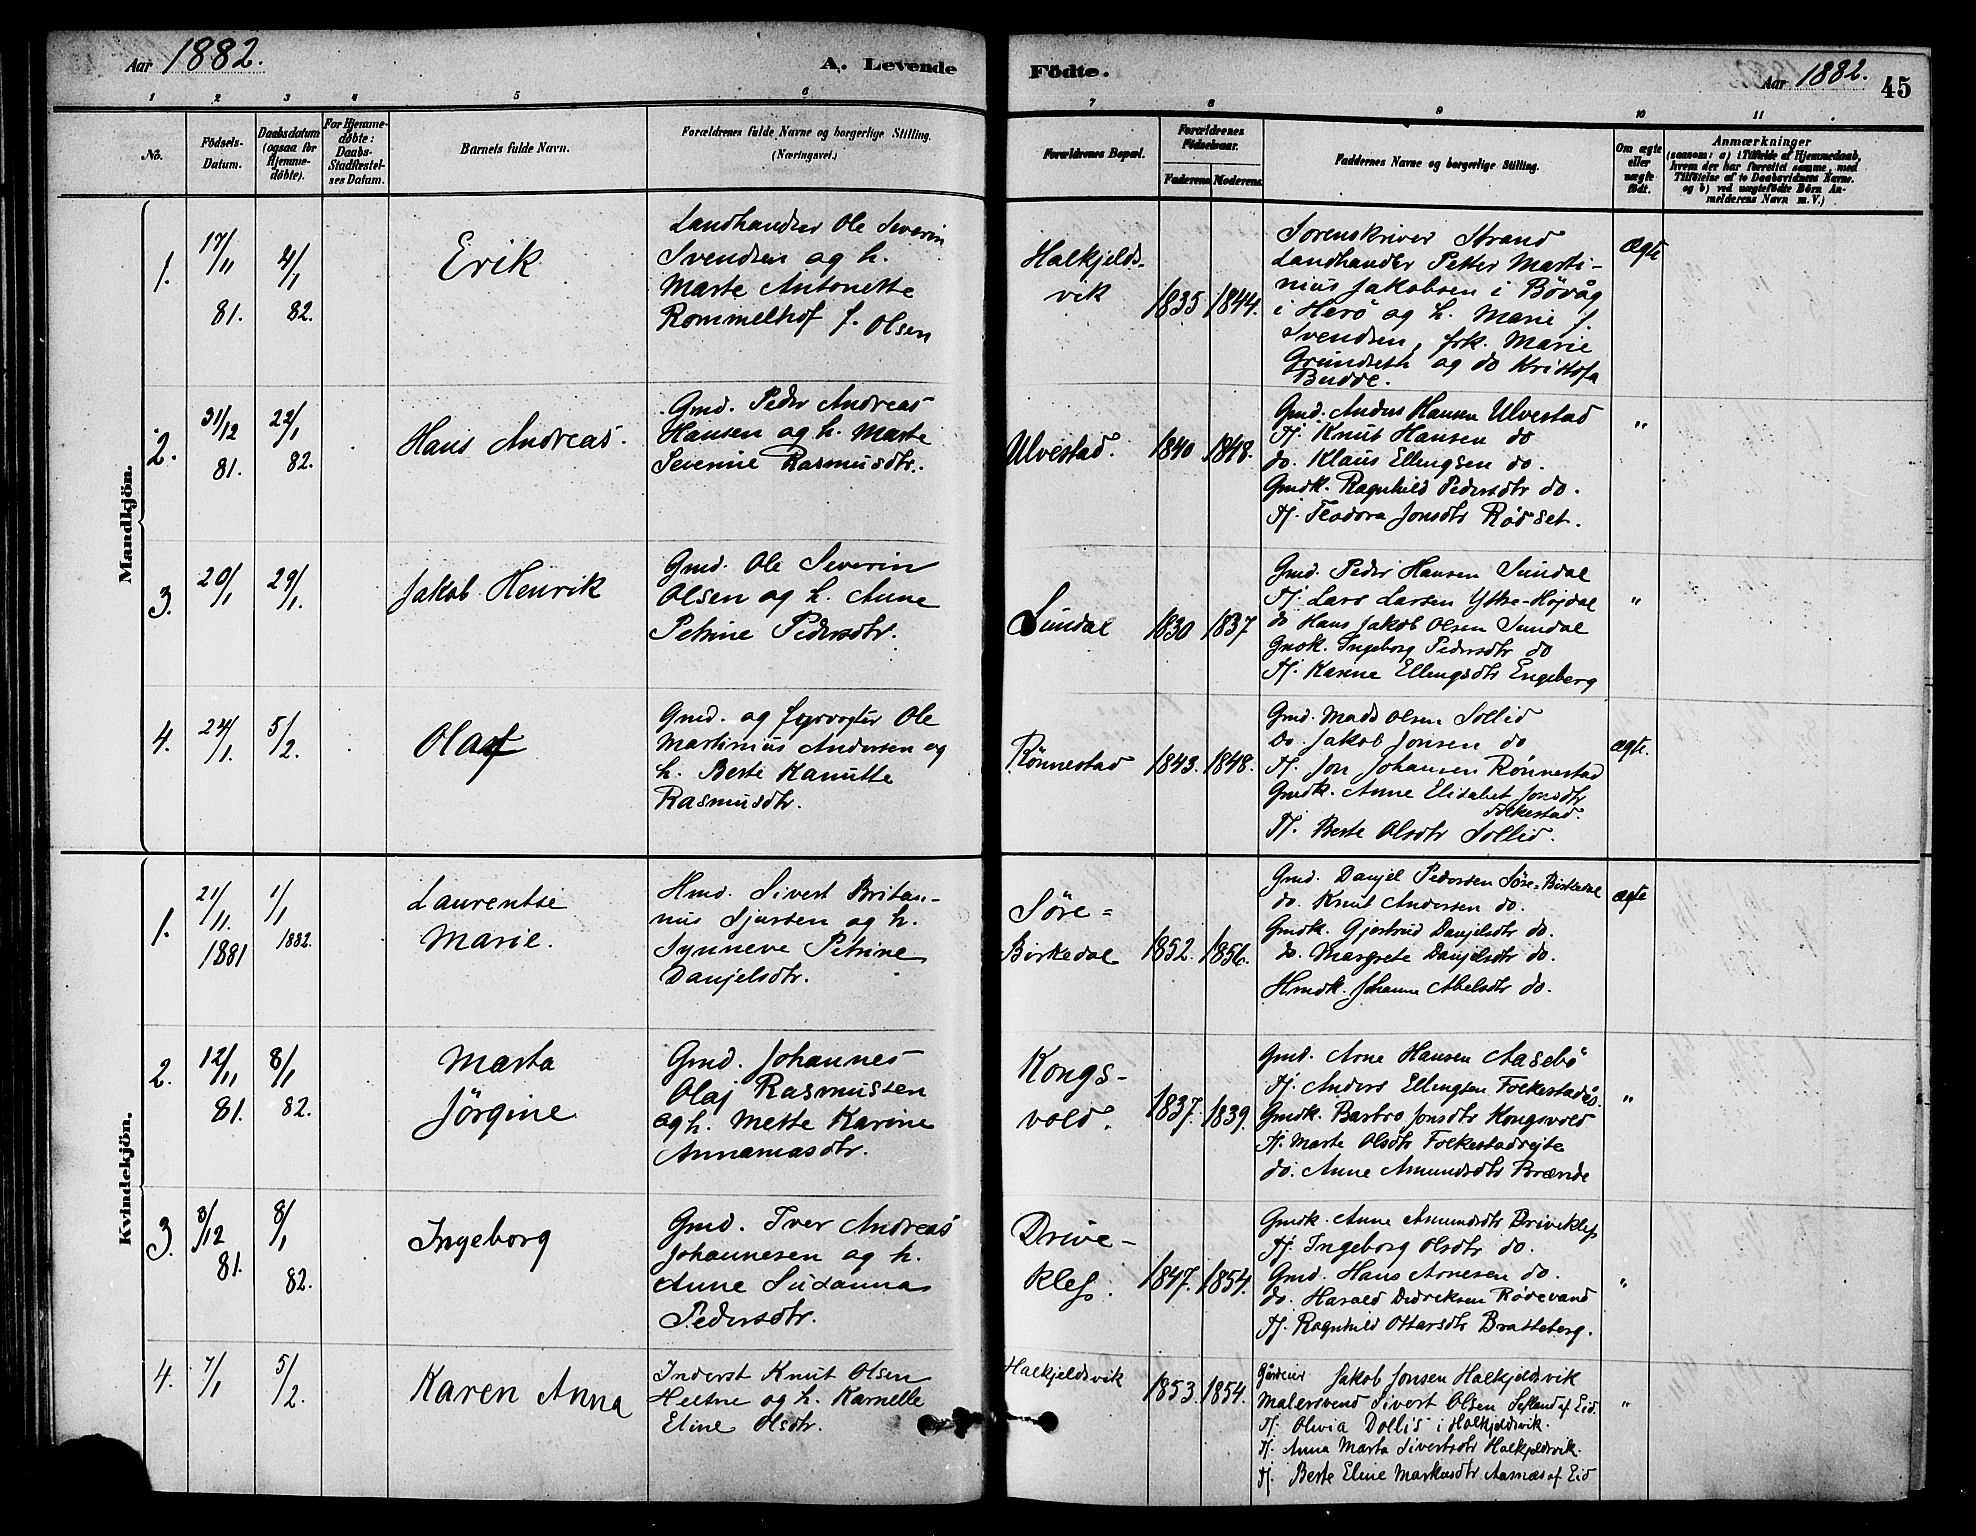 Aar 1882.
A. Levende
Födte.
Aar 1882.
45
1 2 3 4 5 6 7 8 9 10 11
No.
Födsels-
Datum.
Daabsdatum
(ogsaa for
Hjemme-
döbte).
For Hjemme-
döbte:
Daabs-
Stadfæstel-
ses Datum.
Barnets fulde Navn.
Forældrenes fulde Navne og borgerlige Stilling.
(Næringsvei.)
Forældrenes Bopæl.
Forældrenes
Födselsaar.
Faderens. Moderens.
Faddernes Navne og borgerlige Stilling.
Om ægte
eller
uægte
födt.
Anmærkninger
(saasom: a) i Tilfælde af Hjemmedaab,
hvem der har forrettet samme, med
Tilföielse af to Daabsvidners Navne.
og b) ved uægtefödte Börn An-
melderens Navn m. V.)
Mandkjön.
1.
17/11
81.
4/1
82.
Erik
Landhandler Ole Severin
Svendsen og h.
Marte Antonette
Rommelhof f. Olsen
Halkjelds-
vik
1835 1844.
Sorenskriver Strand
Landhandler Petter Marti-
nius Jakobsen i Bøvåg
i Herö og h. Marie f.
Svendsen, frk. Marie
Grundseth og do Kristofa
Budde.
Ægte
2.
31/12
81.
22/1
82.
Hans Andreas.
Gmd. Peder Andreas
Hansen og h. Marte
Severine Rasmusdtr.
Ulvestad.
1840 1848.
Gmd. Anders Hansen Ulvestad
Tj. Knut Hansen do
do. Klaus Ellingsen do.
Gmdk. Ragnhild Pedersdtr do.
Tj. Teodora Jonsdtr Rødset.
"
3.
20/1
29/1.
Jakob Henrik
Gmd. Ole Severin
Olsen og h. Anne
Petrine Pedersdtr.
Sundal
1830 1837
Gmd. Peder Hansen Sundal
Tj. Lars Larsen Ytre-Højdal
do Hans Jakob Olsen Sundal
Gmdk. Ingeborg Pedersdtr do
Tj. Karine Ellingsdtr Engeberg
"
4.
24/1.
5/2.
Olaf
Gmd. og fyrvogter Ole
Martinus Andersen og
h. Berte Kanutte
Rasmusdtr.
Rönnestad
1843. 1848.
Gmd. Mads Olsen Sollid
Do. Jakob Jonsen do
Tj. Jon Johansen Rönnestad
Gmdk. Anne Elisabet Jonsdtr
Folkestad.
Tj. Berte Olsdtr Sollid.
ægte.
Kvindekjön.
1.
21/11.
1881
1/1
1882.
Laurentse
Marie.
Hmd. Sivert Britan-
nus Sjursen og h.
Synneve Petrine
Danjelsdtr.
Søre-
Birkedal
1852. 1856.
Gmd. Danjel Pedersen Søre-Birkedal
do. Knut Andersen do.
Gmdk. Gjertrud Danjelsdtr do.
do. Margrete Danjelsdtr do.
Hmdk. Johanne Abelsdtr do.
ægte
2.
12/11
81.
8/1
82.
Marta
Jörgine
Gmd. Johannes
Olaj Rasmussen
og h. Mette Karine
Annaniasdtr.
Kongs-
vold.
1837. 1839.
Gmd. Arne Hansen Aasebö
Tj. Anders Ellingsen Folkestadås.
Gmdk. Barbro Jonsdtr Kongsvold
Tj. Marte Olsdtr Folkestadrejte
do. Anne Amundsdtr Brænde
"
3.
3/12
81.
8/1
82.
Ingeborg
Gmd. Iver Andreas
Johannesen og h.
Anne Susanna
Pedersdtr.
Drive-
klep.
1847. 1854.
Gmdk. Anne Amundsdtr Driveklep
Tj. Ingeborg Olsdtr do.
Gmd. Hans Arnesen do.
do. Harald Didriksen Rødevand
Tj. Ragnhild Ottarsdtr Bratteberg.
"
4.
7/1
5/2.
Karen Anna
Inderst Knut Olsen
Heltne og h. Karnelle
Eline Olsdtr.
Halkjeldsvik
1853. 1854.
Gårdeier Jakob Jonsen Halkjeldsvik
Malersvend Sivert Olsen Sefland af Eid.
Tj. Olivia Dollis i Halkjeldsvik.
Tj. Anna Marta Sivertsdtr Halkjeldsvik.
Tj. Berte Eline Markusdtr Aarnæs af Eid
"